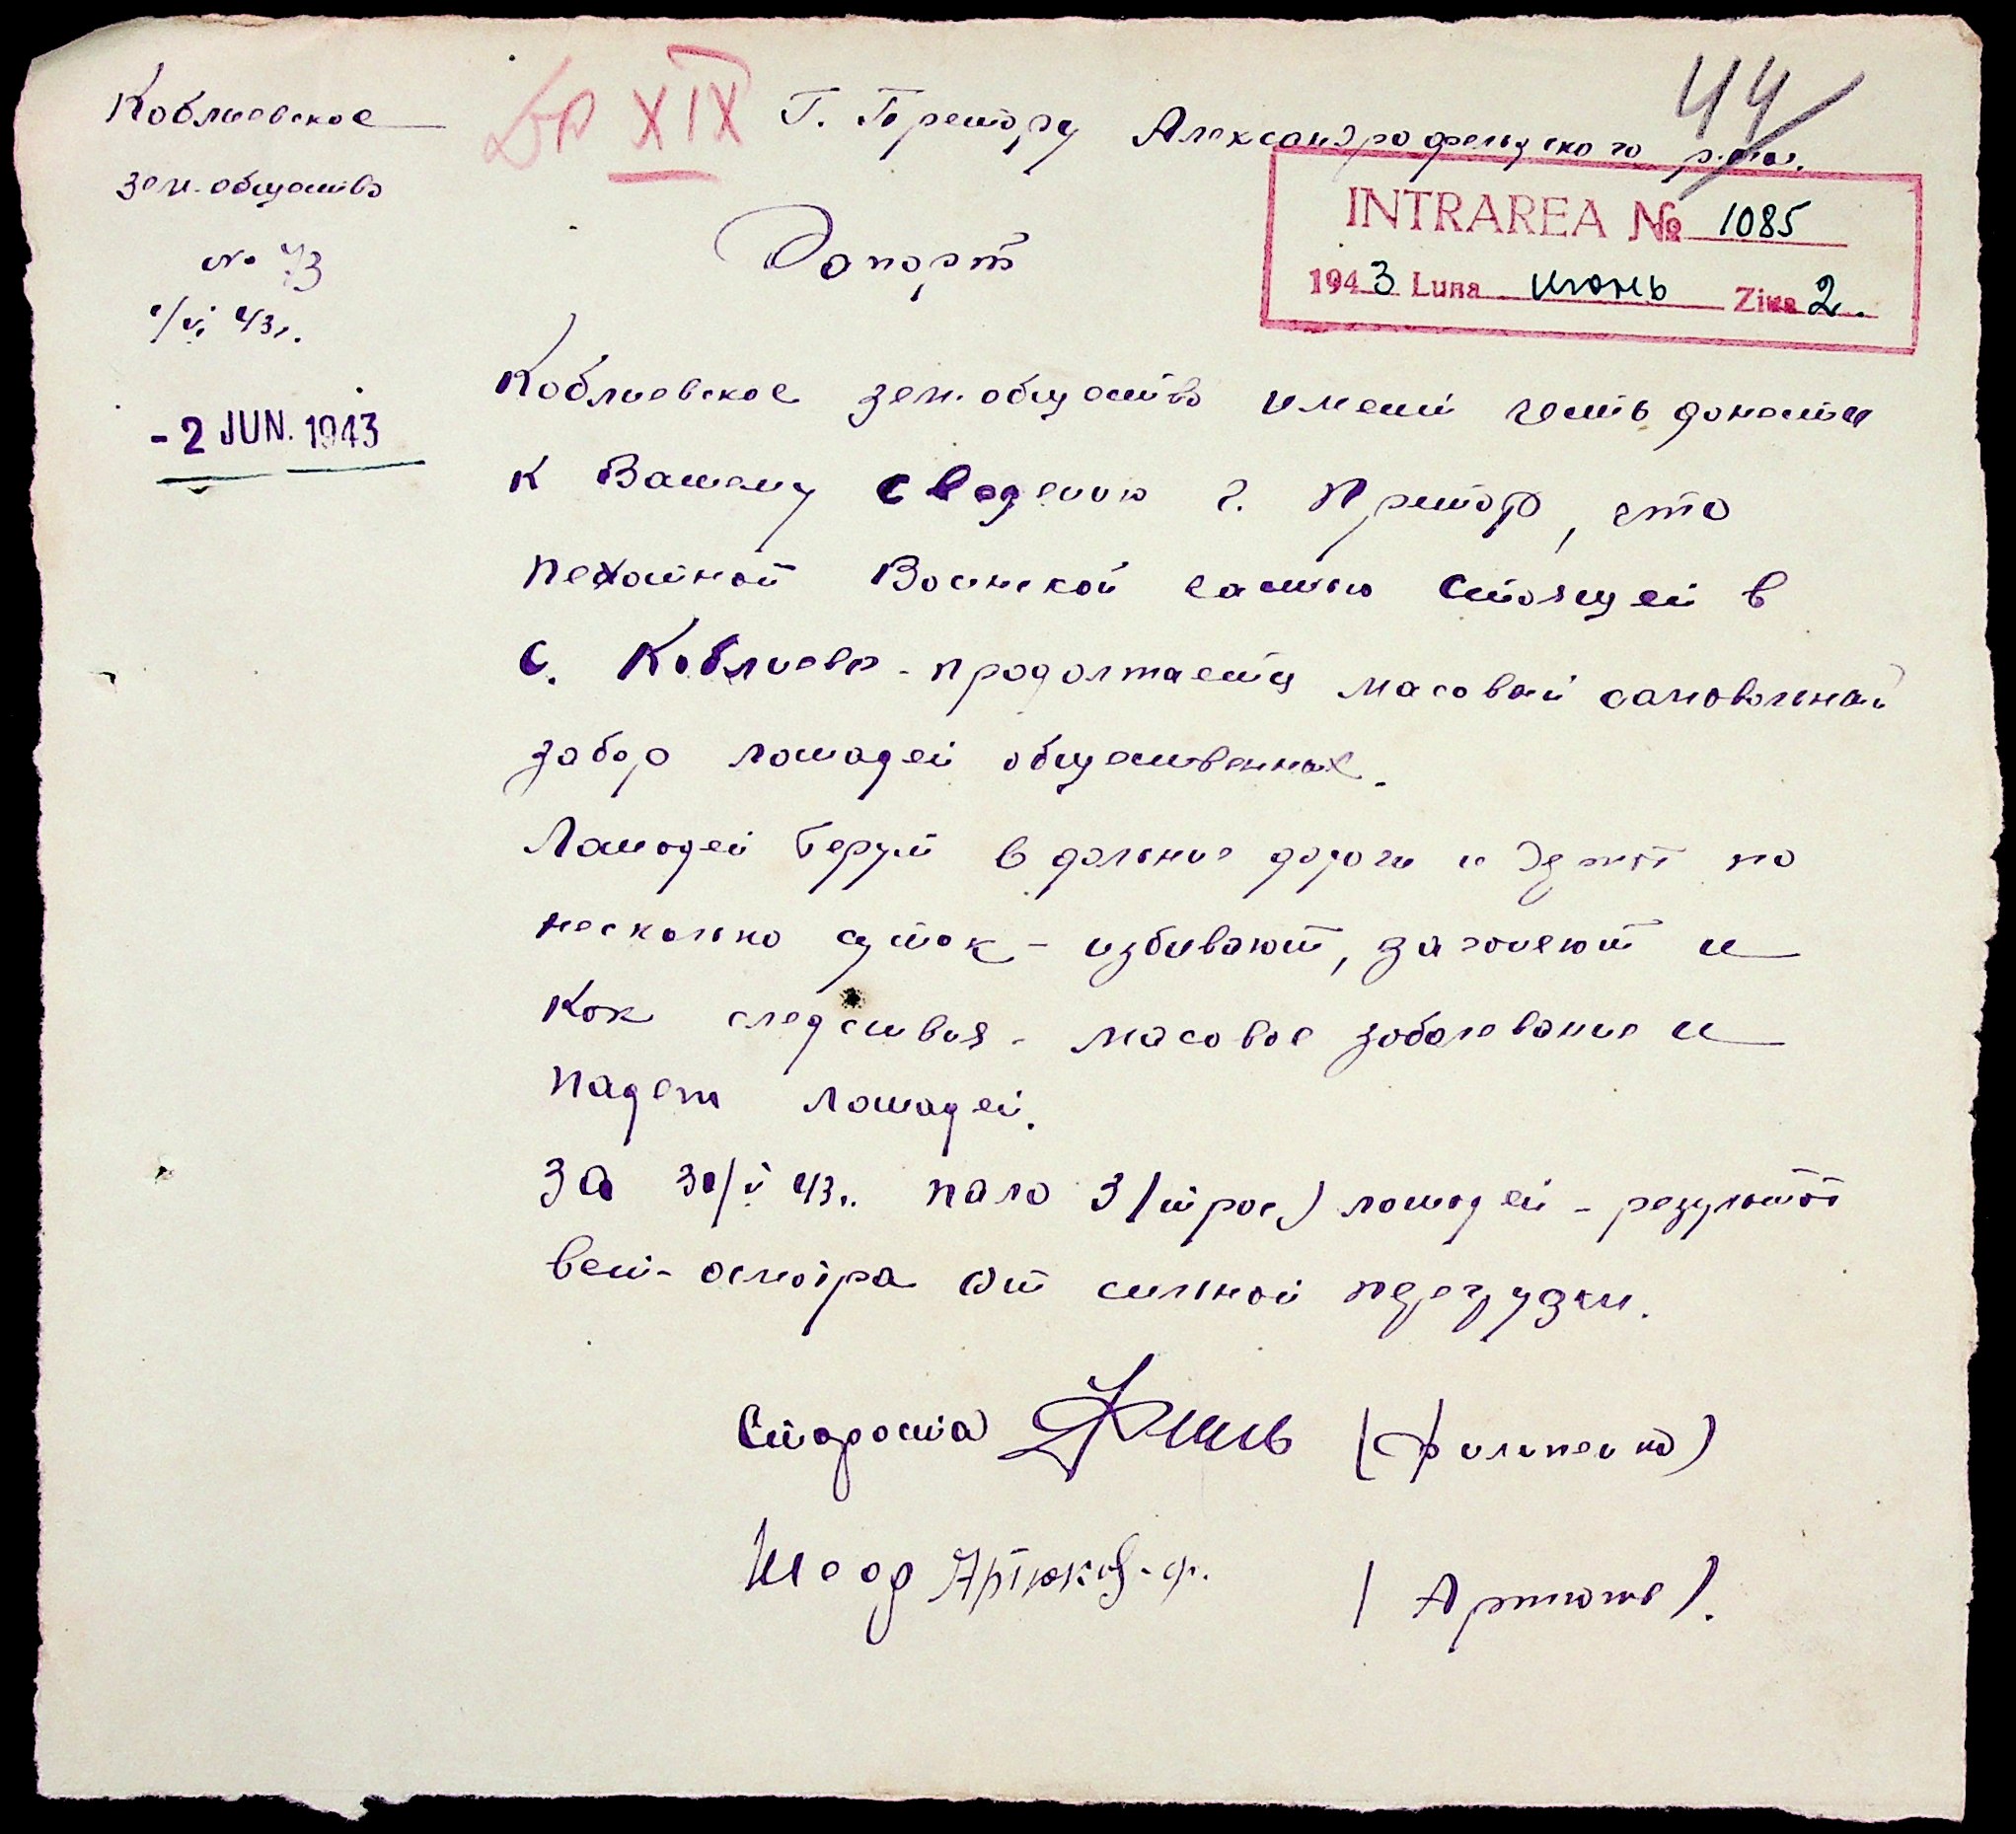 44
Коблиевское
зем. общество
№ 73
1/VI 43 г.
- 2 JUN. 1943
XIX
Г. Претору Александрофельдского р-на.
INTRAREA № 1085
1943 Luna июнь Ziua 2.
Рапорт
Коблиевское зем. общество имеет честь донести
к Вашему сведению г. Претор, что
пехотной Воинской частью стоящей в
с. Коблиево - продолжается масовый самовольный
забор лошадей общественных.
Лошадей берут в дальние дороги и держат по
несколько суток - избивают, загоняют и
как следствия - масовое заболевание и
падеж лошадей.
За 30/V 43 г. пало 3 (трое) лошадей - результат
вет-осмотра от сильной перегрузки.
Староста (Филипенко)
Артюхов
(Артюхов).